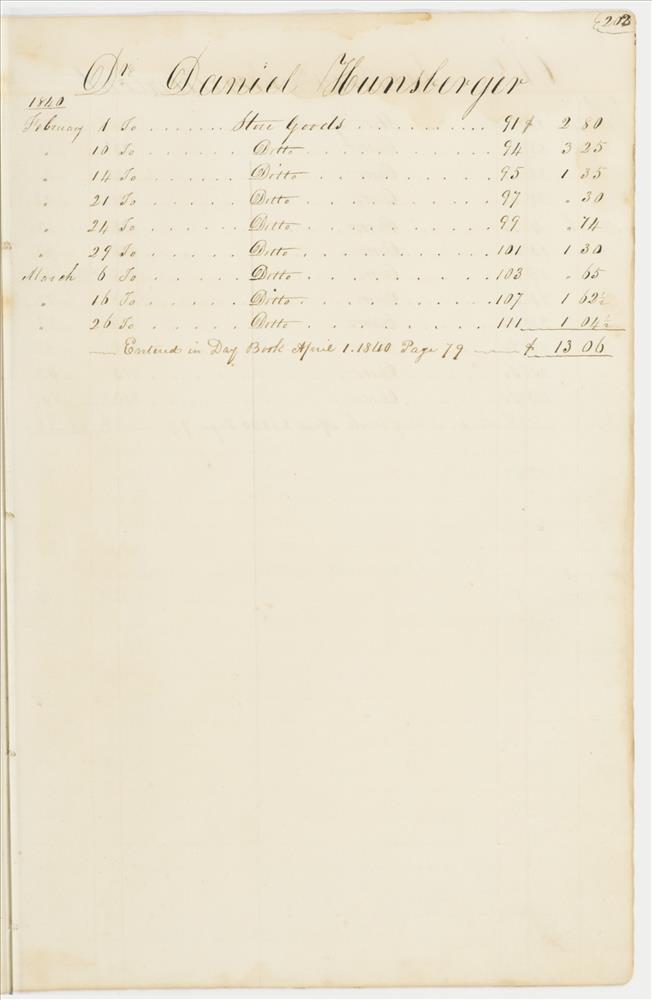 202
Dr. Daniel Hunsberger
1840
February 1 To . . . . . . Store Goods . . . . . . . . . . 91 $ 2 80
" 10 To . . . . . . Ditto . . . . . . . . . . . 94 3 25
" 14 To . . . . . . Ditto . . . . . . . . . . . 95 1 35
" 21 To . . . . . . Ditto . . . . . . . . . . . 97 " 30
" 24 To . . . . . . Ditto . . . . . . . . . . . 99 " 74
" 29 To . . . . . . Ditto . . . . . . . . . . . 101 1 30
March 6 To . . . . . . Ditto . . . . . . . . . . . 103 " 65
" 16 To . . . . . . Ditto . . . . . . . . . . . 107 1 62½
" 26 To . . . . . . Ditto . . . . . . . . . . . 111 1 04½
Entered in Day Book April 1. 1840 Page 79 $ 13 06